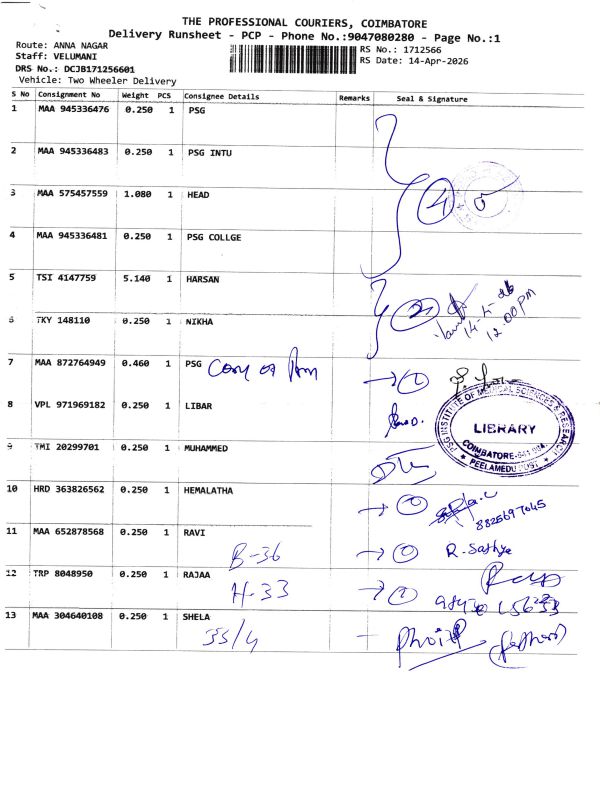 THE PROFESSIONAL COURIERS, COIMBATORE
Delivery Runsheet - PCP - Phone No.:9047080280 - Page No.:1
Route: ANNA NAGAR
Staff: VELUMANI
DRS No.: DCJB171256601
Vehicle: Two Wheeler Delivery
RS No.: 1712566
RS Date: 14-Apr-2026
S No Consignment No Weight PCS Consignee Details Remarks Seal & Signature
1 MAA 945336476 0.250 1 PSG
2 MAA 945336483 0.250 1 PSG INTU
3 MAA 575457559 1.080 1 HEAD
4
4 MAA 945336481 0.250 1 PSG COLLGE
5 TSI 4147759 5.140 1 HARSAN
2
14-4-26
12.00 PM
6 TKY 148110 0.250 1 NIKHA
7 MAA 872764949 0.460 1 PSG
8 VPL 971969182 0.250 1 LIBAR
PSG INSTITUTE OF MEDICAL SCIENCES & RESEARCH
LIBRARY
COIMBATORE-641 004.
PEELAMEDU POST
9 TMI 20299701 0.250 1 MUHAMMED
10 HRD 363826562 0.250 1 HEMALATHA
8825697645
11 MAA 652878568 0.250 1 RAVI
B-36
R. Sathya
12 TRP 8048950 0.250 1 RAJAA
H-33
13 MAA 304640108 0.250 1 SHELA
35/4